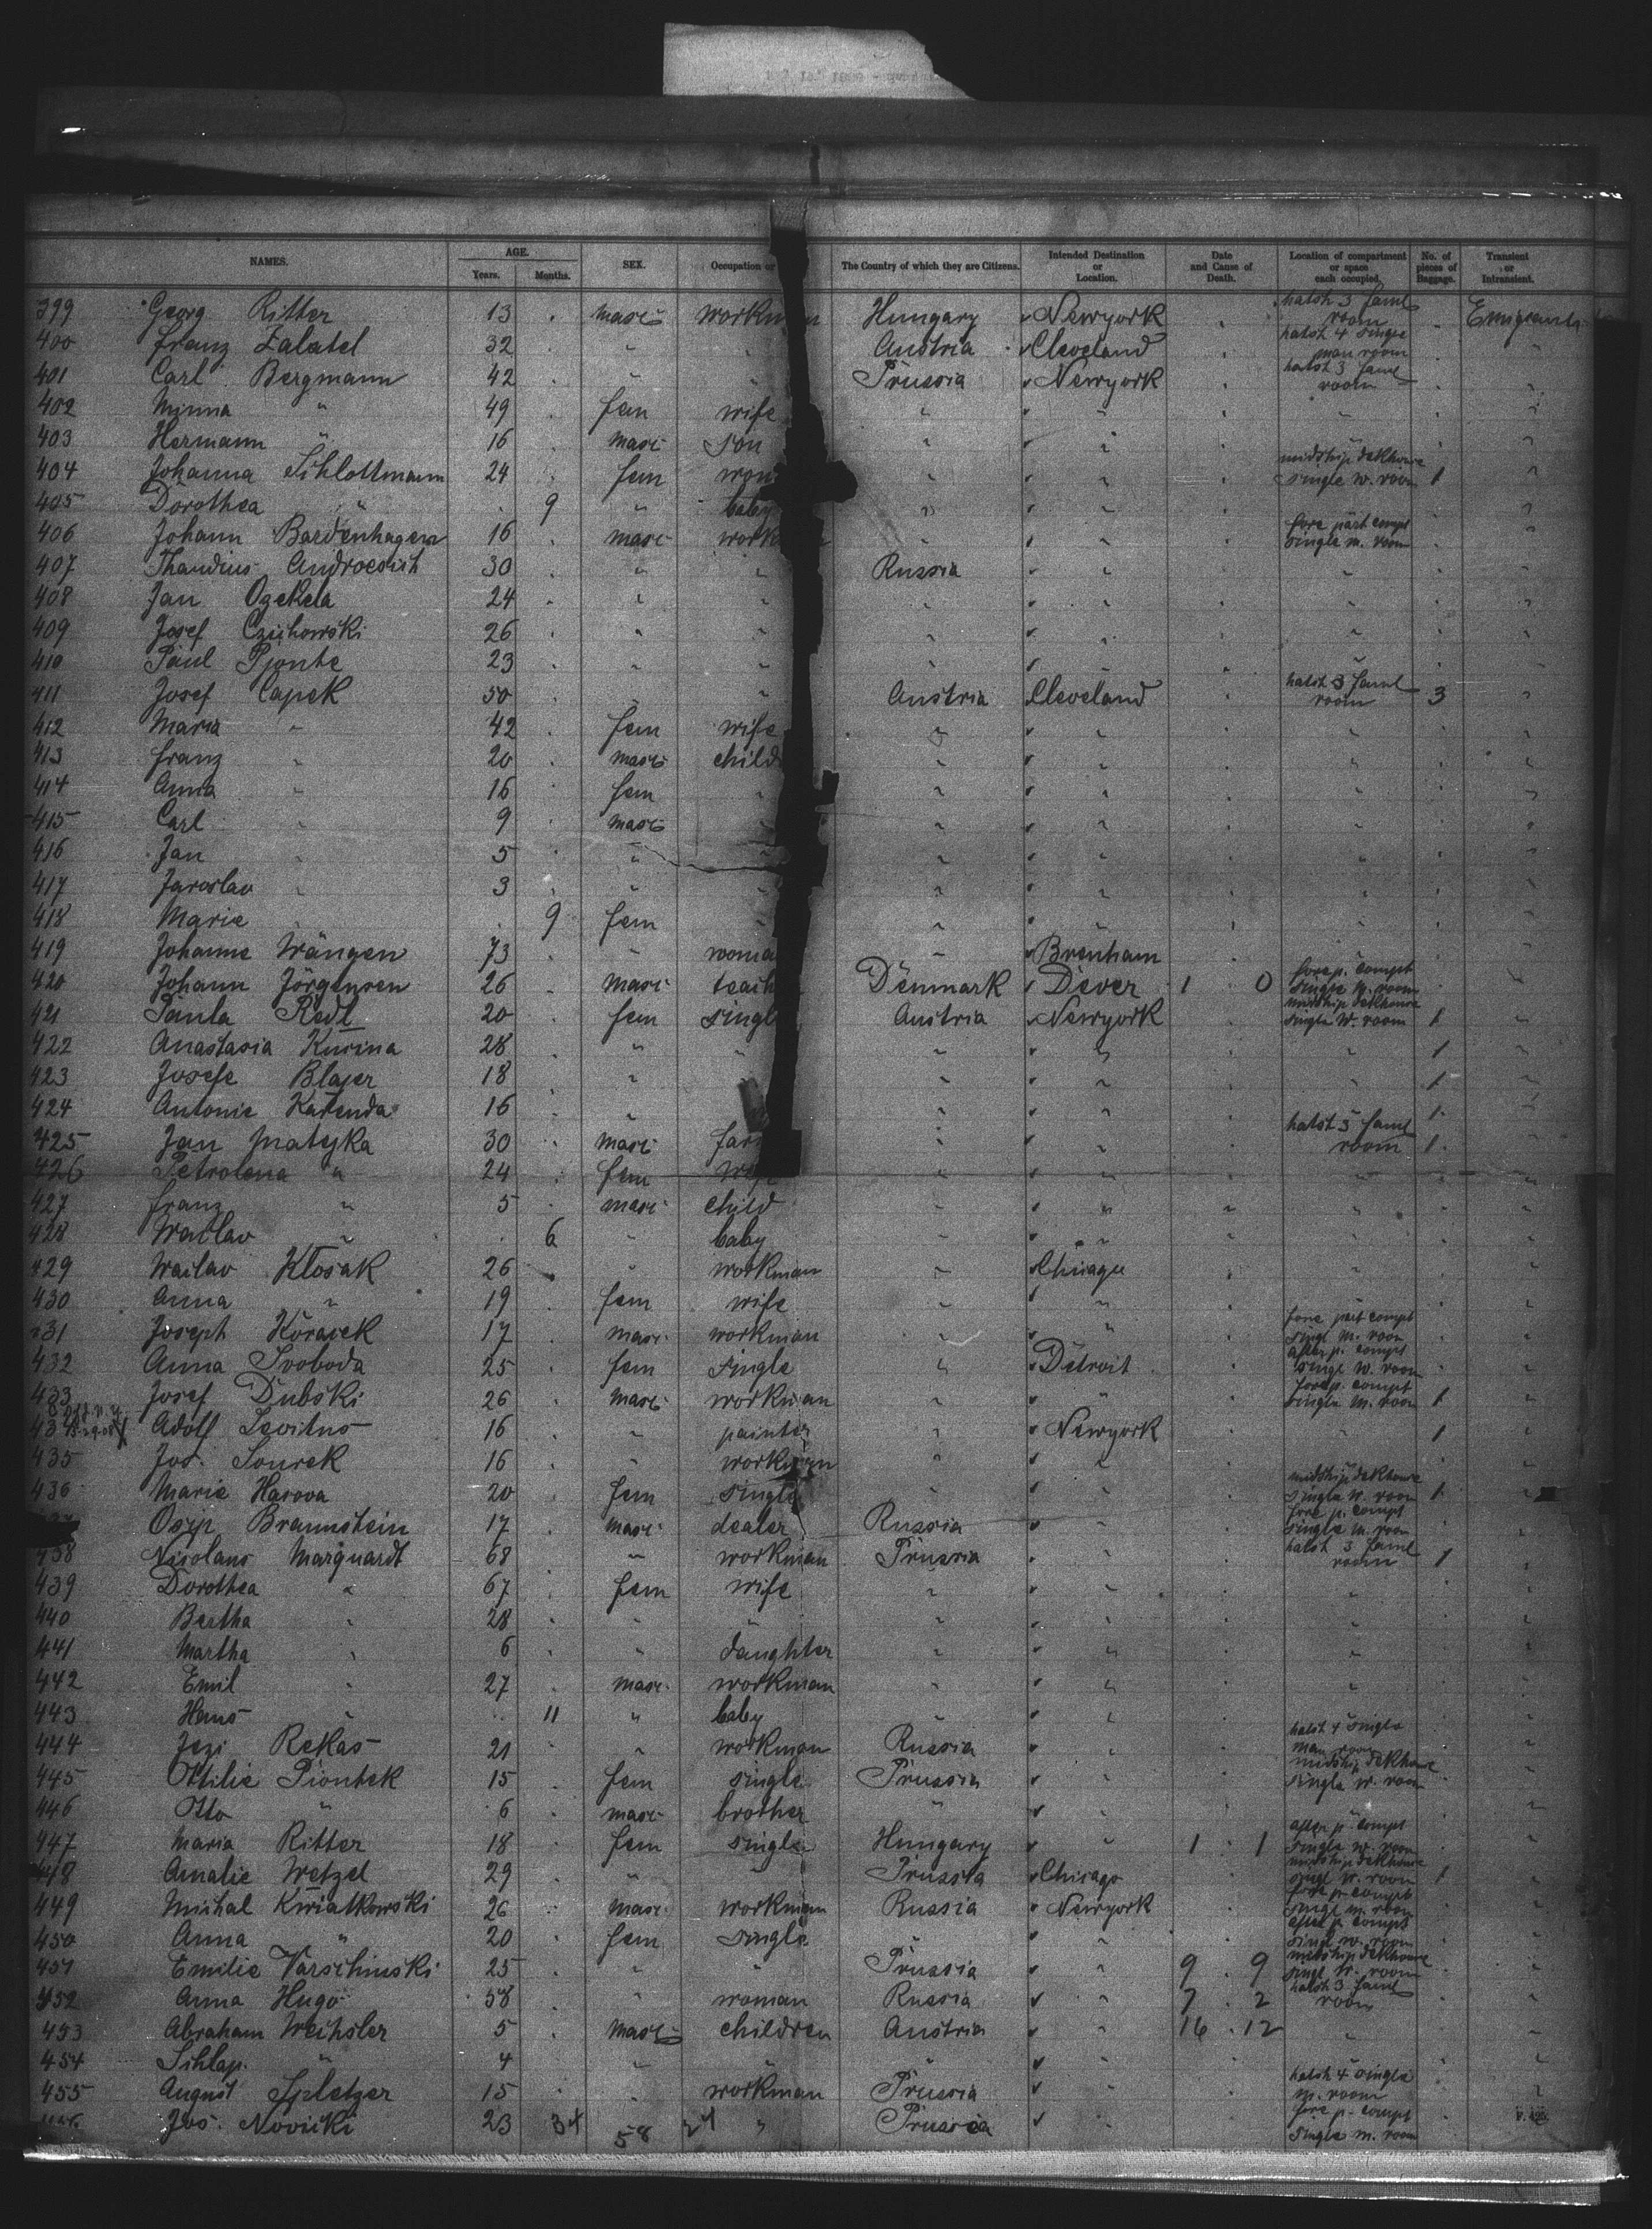 NAMES. AGE. Years. Months. SEX. Occupation or The Country of which they are Citizens. Intended Destination or Location. Date and Cause of Death. Location of compartment or space each occupied. No. of pieces of Baggage. Transient or Intransient.
399 Georg Ritter 13 masc workman Hungary Newyork hatch 3 faml room Emigrants
400 Franz Zalatel 32 " " Austria Cleveland hatch 4 single man room "
401 Carl Bergmann 42 " " Prussia Newyork hatch 3 faml room "
402 Minna " 49 fem wife " " " "
403 Hermann " 16 masc son " " " "
404 Johanna Schlottmann 24 fem " " midship dekhouse single w. room 1 "
405 Dorothea " 9 " baby " " " "
406 Johann Bardenhagen 16 masc work " " fore part compt single m. room "
407 Thaudius 30 " " Russia " " "
408 Jan Ogekela 24 " " " " " "
409 Josef Czichowski 26 " " " " " "
410 Paul Pjonte 23 " " " " " "
411 Josef Capek 50 " " Austria Cleveland hatch 3 faml room 3 "
412 Maria " 42 fem wife " " " "
413 Franz " 20 masc child " " " "
414 Anna " 16 fem " " " " "
415 Carl " 9 masc " " " " "
416 Jan " 5 " " " " " "
417 Jaroslav " 3 " " " " " "
418 Marie " 9 fem " " " " "
419 Johanne Wängen 73 " woma " Brenham " "
420 Johann Jörgensen 26 masc teach Denmark Dever 1 0 fore p. compt single m. room "
421 Paula Redl 20 fem singl Austria Newyork midship dekhouse single w. room 1 "
422 Anastasia Kucina 28 " " " " " 1 "
423 Josefe Blajer 18 " " " " 1 "
424 Antonie Kalenda 16 " " " 1 "
425 Jan Matejka 30 masc far " " hatch 3 faml room 1 "
426 Petrolena " 24 fem wife " " " "
427 Franz " 5 masc child " " " "
428 Waclav " 6 " baby " " " "
429 Waclav Klosak 26 " workman " Chicago " "
430 Anna " 19 fem wife " " "
431 Joseph Koracek 17 masc workman " " fore part compt singl m. room "
432 Anna Svoboda 25 fem single " Detroit after p. compt singl w. room "
433 Josef Dubski 26 masc workman " " fore p. compt single m. room 1 "
434 Adolf Levitus 16 " painter " Newyork " 1 "
435 Jos. Sourek 16 " workman " " "
436 Marie Hasova 20 fem single " " midship dekhouse single w. room 1 "
Osyp Braunstein 17 masc dealer Russia " fore p. compt single m. room "
438 Nicolaus Marquardt 68 " workman Prussia " hatch 3 faml room 1 "
439 Dorothea " 67 fem wife " " " "
440 Bertha " 28 " " " " " "
441 Martha " 6 " daughter " " " "
442 Emil " 27 masc workman " " " "
443 Hans " 11 " baby " " "
444 Jozi Rekas 21 " workman Russia " hatch 4 single man room "
445 Ottilie Piontek 15 fem single Prussia " midship dekhouse single w. room "
446 Otto " 6 masc brother " " "
447 Maria Ritter 18 fem single Hungary " 1 1 after p. compt single w. room "
448 Amalie Wetzel 29 " " Prussia Chicago midship dekhouse singl w. room 1 "
449 Michal Kwiatkowski 26 masc workman Russia Newyork fore p. compt singl m. room "
450 Anna " 20 fem single " " after p. compt singl w. room "
451 Emilie Varschinski 25 " " Prussia " 9 9 midship dekhouse singl w. room "
452 Anna Hugo 58 " woman Russia " 7 2 hatch 3 faml room "
453 Abraham Wechsler 5 masc children Austria " 16 12 " "
454 Schlap. " 4 " " " " "
455 August Spletzer 15 " workman Prussia " hatch 4 single m. room "
456 Jos. Novicki 23 34 58 24 " Prussia fore p. compt single m. room